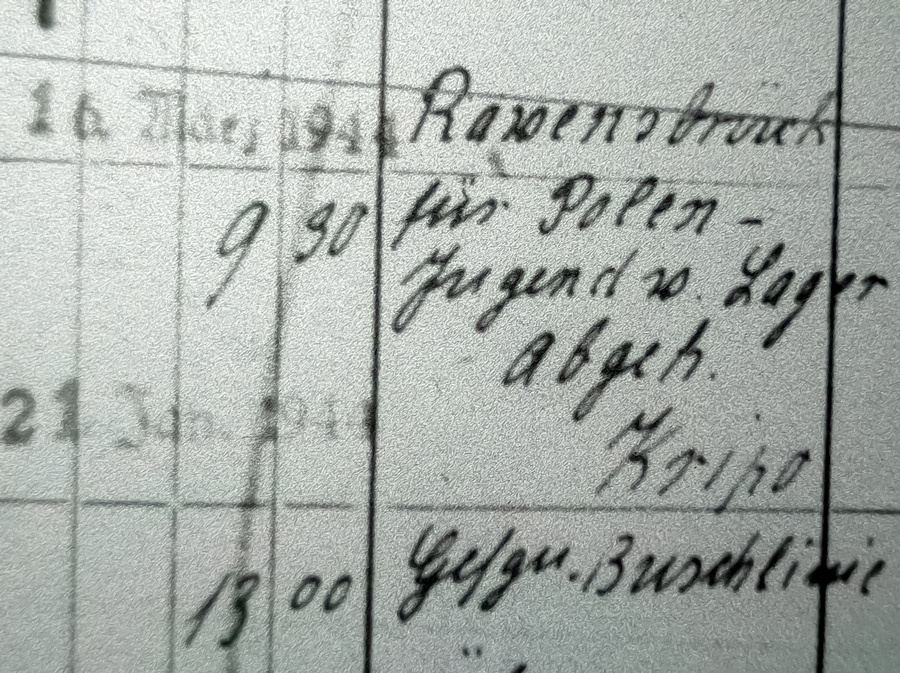 16. März 1944 Rawensbrück
9 30 für Polen-
Jugend w. Lager
Abgeh.
21 Jan. 1944 Kripo
13 00 Gefgn. Buschlinie